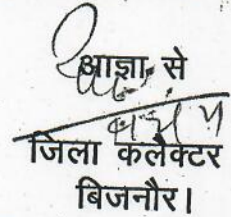 आज्ञा से
जिला कलेक्टर
बिजनौर।